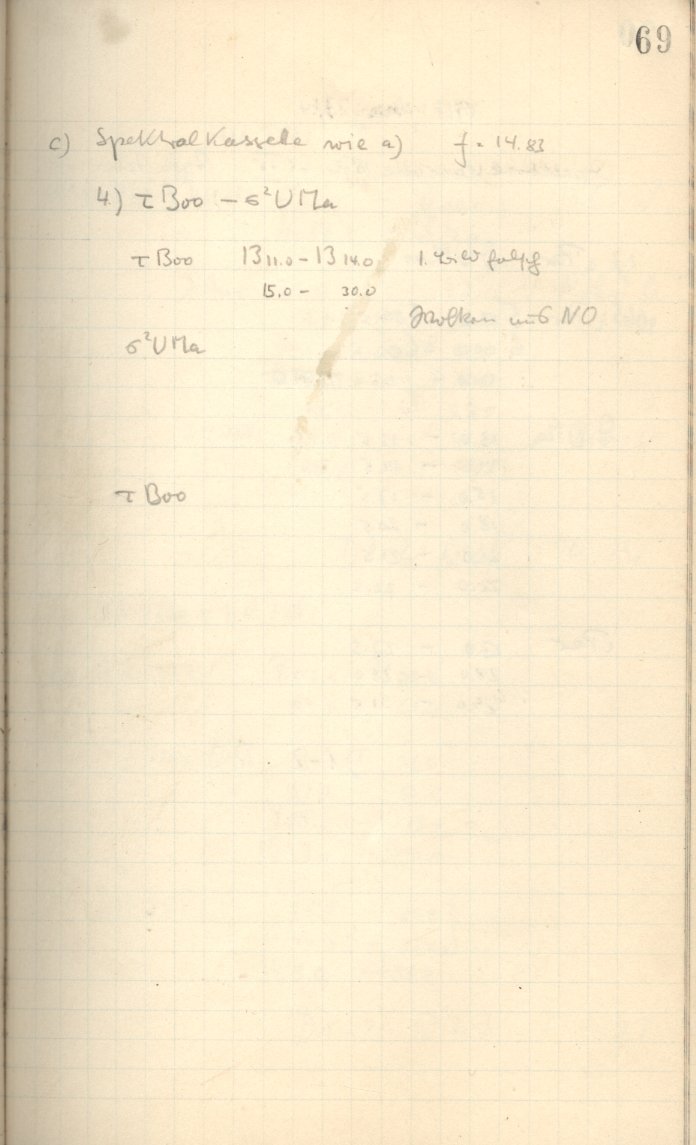 69
c) Spektralkassette wie a) f = 14.83
4) τ Boo – σ²UMa
τ Boo 13 11.0 – 13 14.0 1. Bild falsch
15.0 – 30.0
Wolken aus NO
σ²UMa
τ Boo